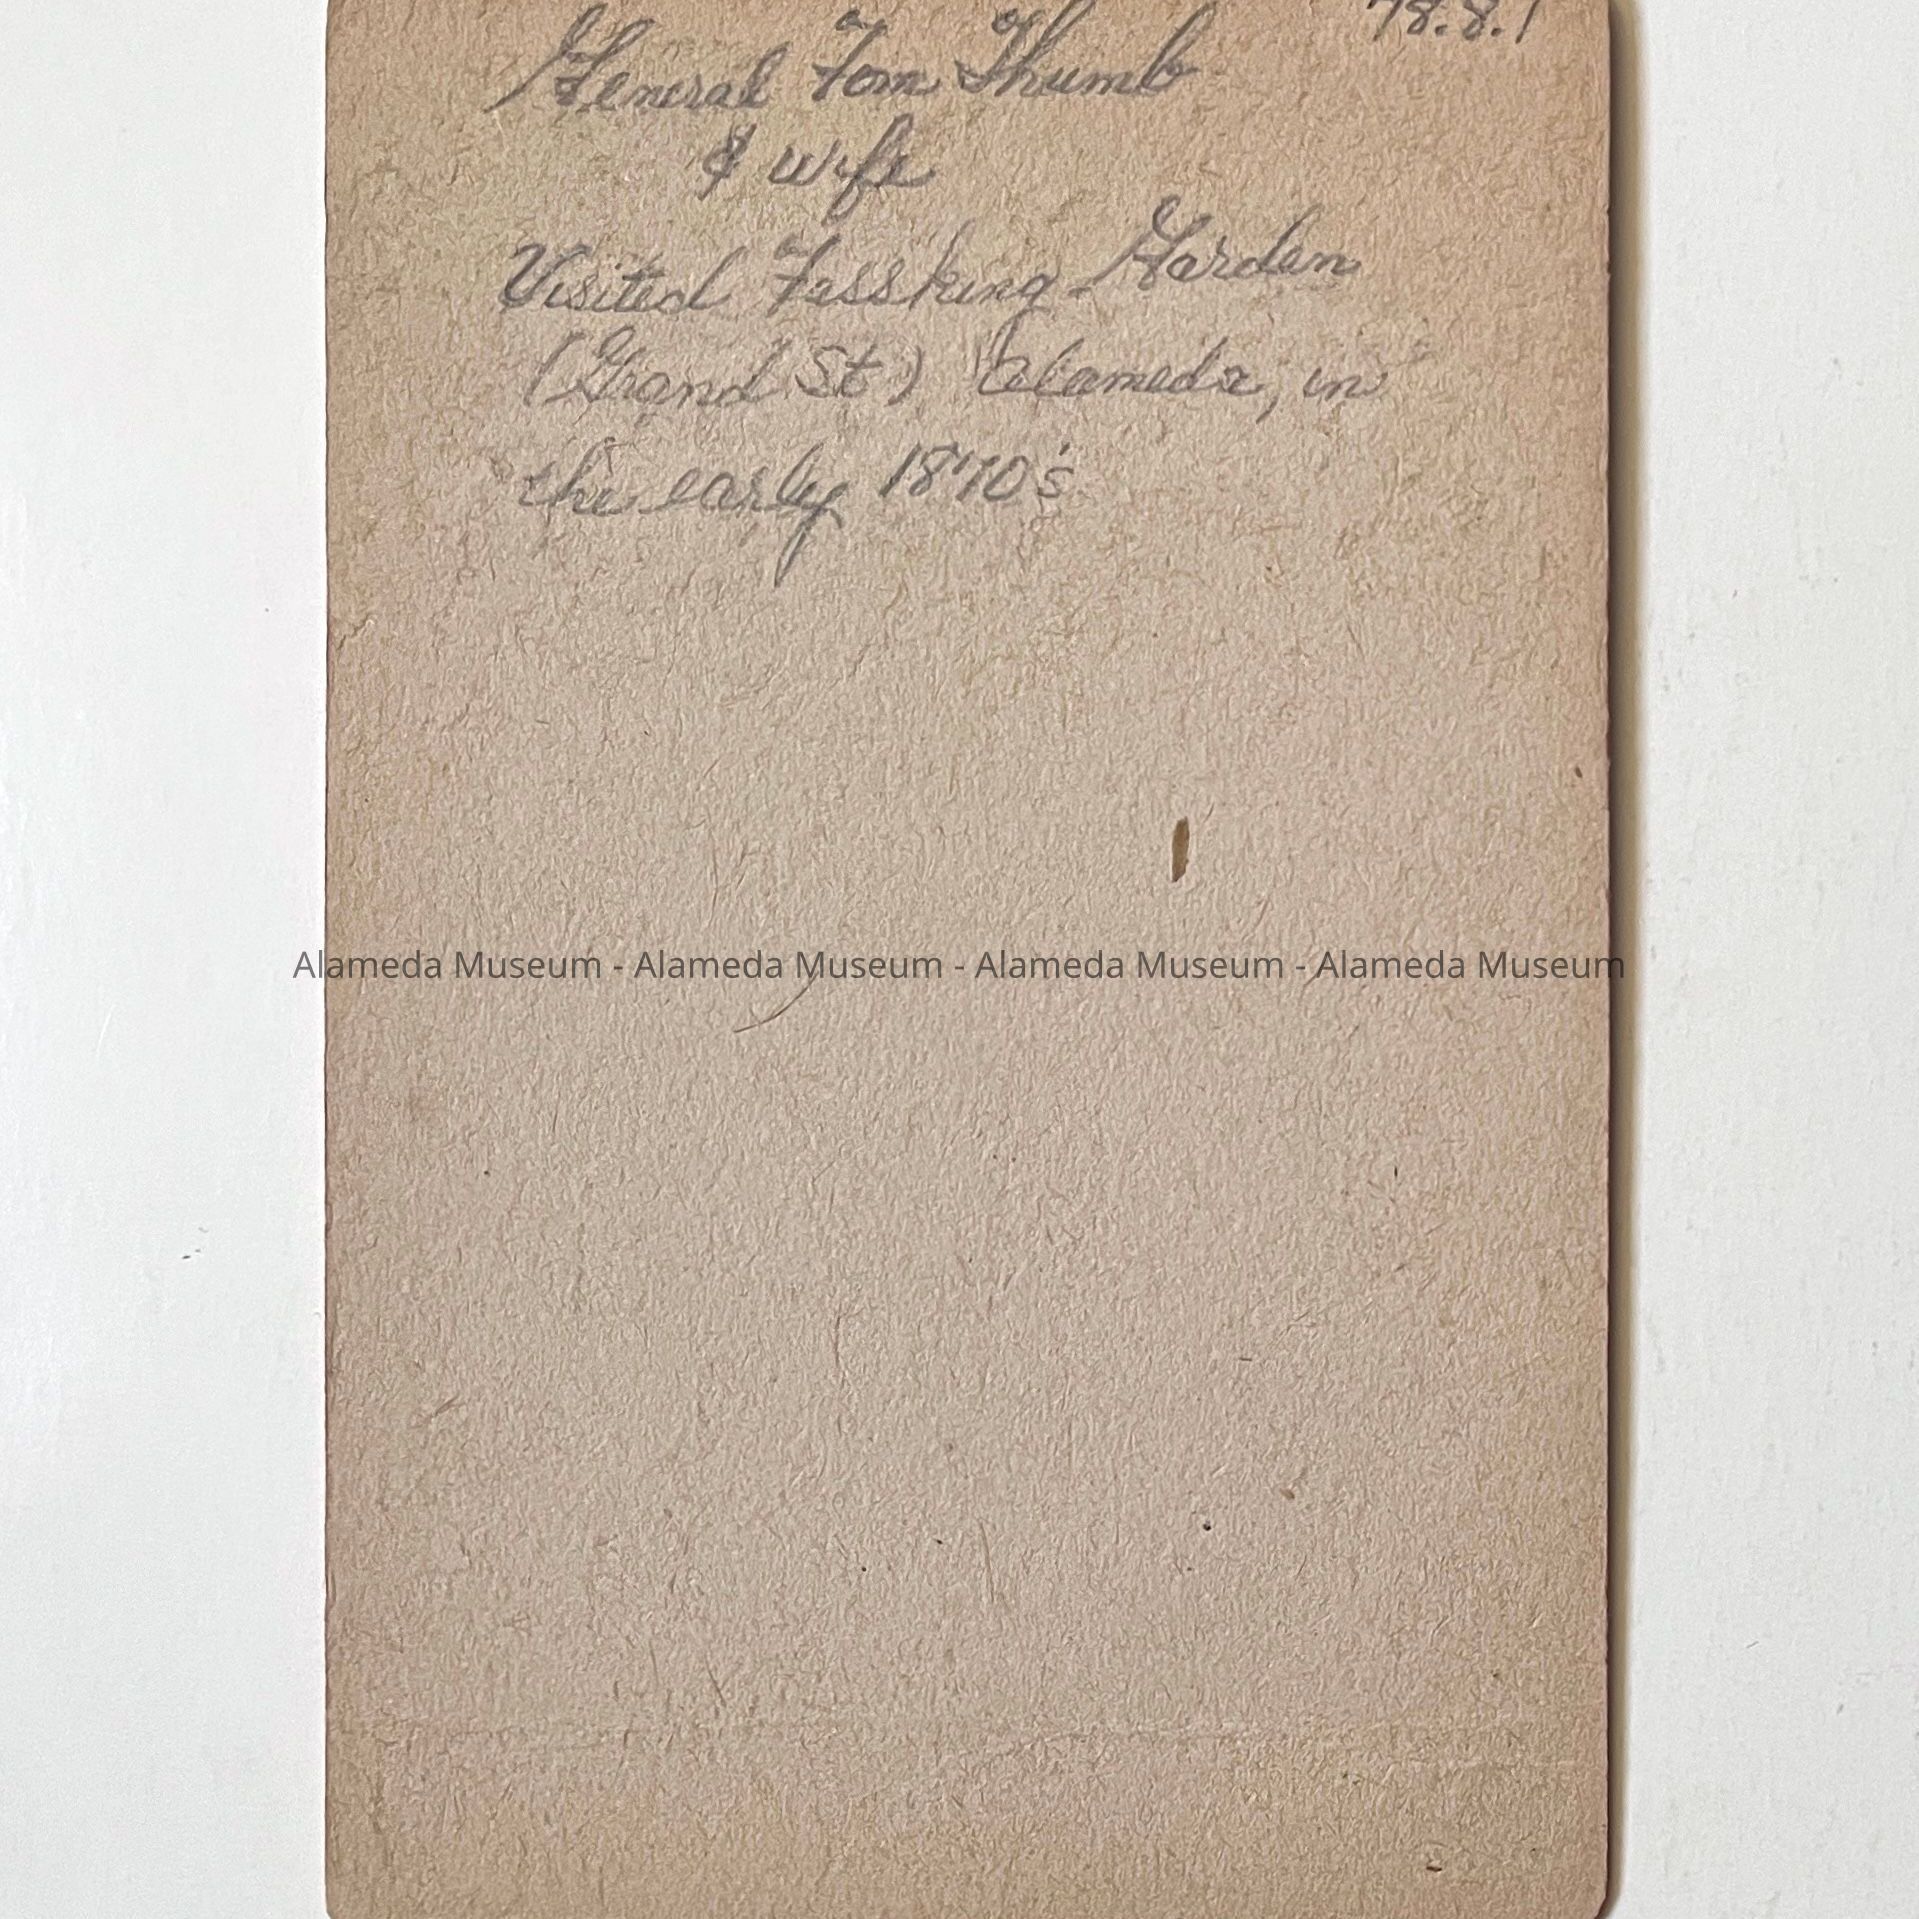 78.8.1
General Tom Thumb
& wife
Visited Fassking Garden
(Grand St) Alameda, in
the early 1870's
Alameda Museum - Alameda Museum - Alameda Museum - Alameda Museum